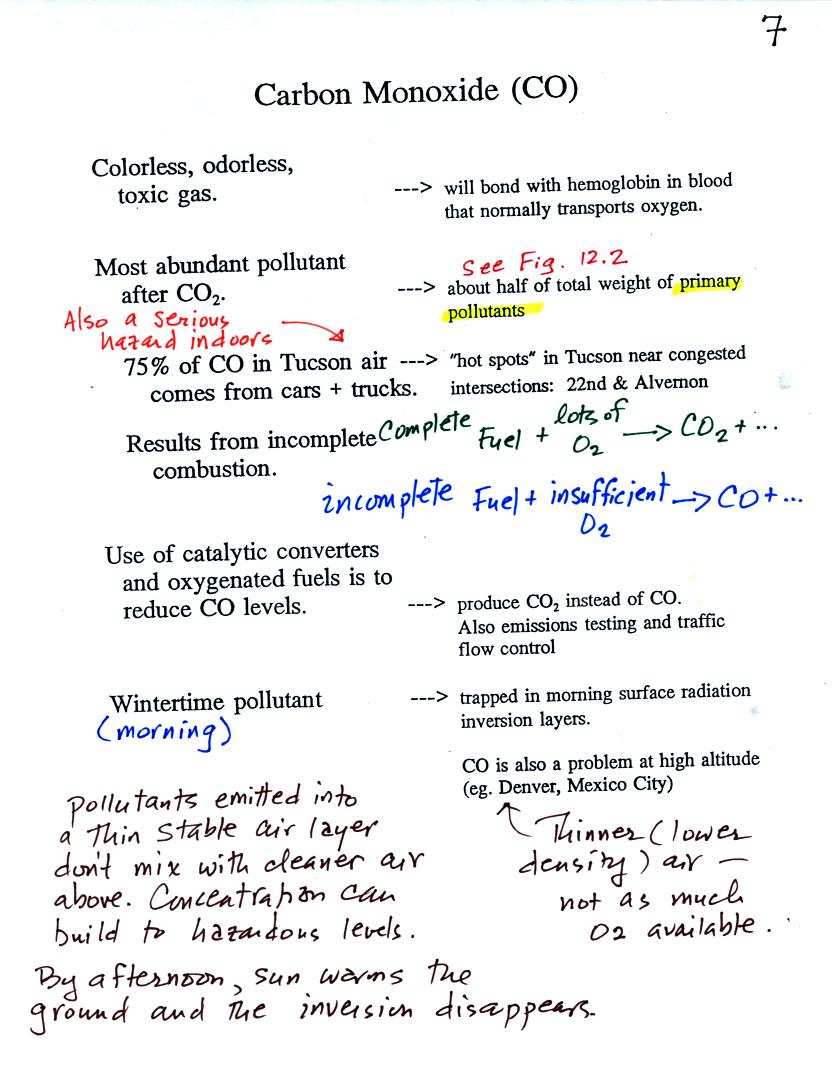 7
Carbon Monoxide (CO)
Colorless, odorless,
toxic gas.
---> will bond with hemoglobin in blood
that normally transports oxygen.
Most abundant pollutant
after CO₂.
See Fig. 12.2
---> about half of total weight of primary
pollutants
Also a serious
hazard indoors
75% of CO in Tucson air
comes from cars + trucks.
---> "hot spots" in Tucson near congested
intersections: 22nd & Alvernon
Results from incomplete
combustion.
Complete Fuel + lots of O₂ → CO₂ + ...
incomplete Fuel + insufficient O₂ → CO + ...
Use of catalytic converters
and oxygenated fuels is to
reduce CO levels.
---> produce CO₂ instead of CO.
Also emissions testing and traffic
flow control
Wintertime pollutant
(morning)
---> trapped in morning surface radiation
inversion layers.
CO is also a problem at high altitude
(eg. Denver, Mexico City)
Pollutants emitted into
a thin stable air layer
don't mix with cleaner air
above. Concentration can
build to hazardous levels.
Thinner (lower
density) air —
not as much
O2 available.
By afternoon, sun warms the
ground and the inversion disappears.